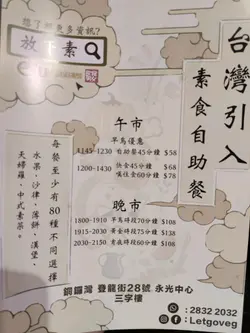 想了解更多資訊?
放下素
台灣引入
素食自助餐
午市
早鳥優惠
1145-1230 自助餐45分鐘 $58
1200-1430 快食45分鐘 $68
嘆住食60分鐘 $78
晚市
1800-1910 早鳥時段70分鐘 $108
1915-2030 黃金時段75分鐘 $138
2030-2150 宵夜時段60分鐘 $108
每餐至少有80種不同選擇
水果、沙律、薄餅、漢堡、
天婦羅、中式素菜。
銅鑼灣 登龍街28號 永光中心
三字樓
: 2832 2032
: Letgoveg